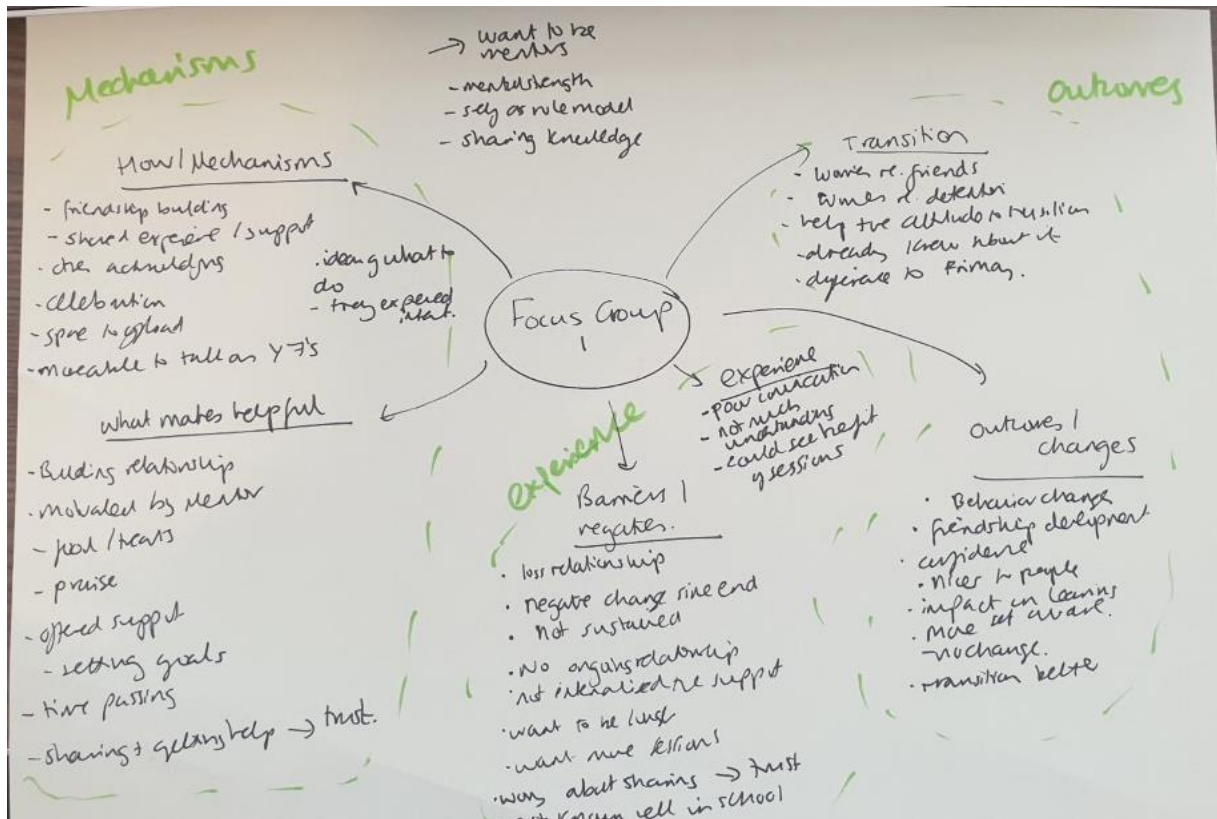 Mechanisms
→ want to be
mentors
- mental strength
- self as role model
- sharing knowledge
outcomes
How/Mechanisms
- friendship building
- shared experience / support
- others acknowledging
- celebration
- space to offload
- more able to talk as Y7's
. idea of what to
do
- they expected
Focus Group
1
Transition
- worries re. friends
- worries re. detention
- help +ve attitude to transition
- already knew about it
. difference to Primary.
what makes helpful
- Building relationship
- motivated by Mentor
- food / treats
- praise
- offered support
- setting goals
- time passing
- sharing + getting help → trust.
experience
experience
- poor communication
- not much
understanding
- could see benefit
of sessions
Barriers /
negatives.
. loss relationship
. negative change since end
. Not sustained
. No ongoing relationship
. not internalised the support
. want to be longer
. want more sessions
. worry about sharing → trust
known well in school
outcomes /
changes
. Behaviour change
. friendship development
. confidence
. nicer to people
. impact on learning
. more self aware.
- no change.
. transition better